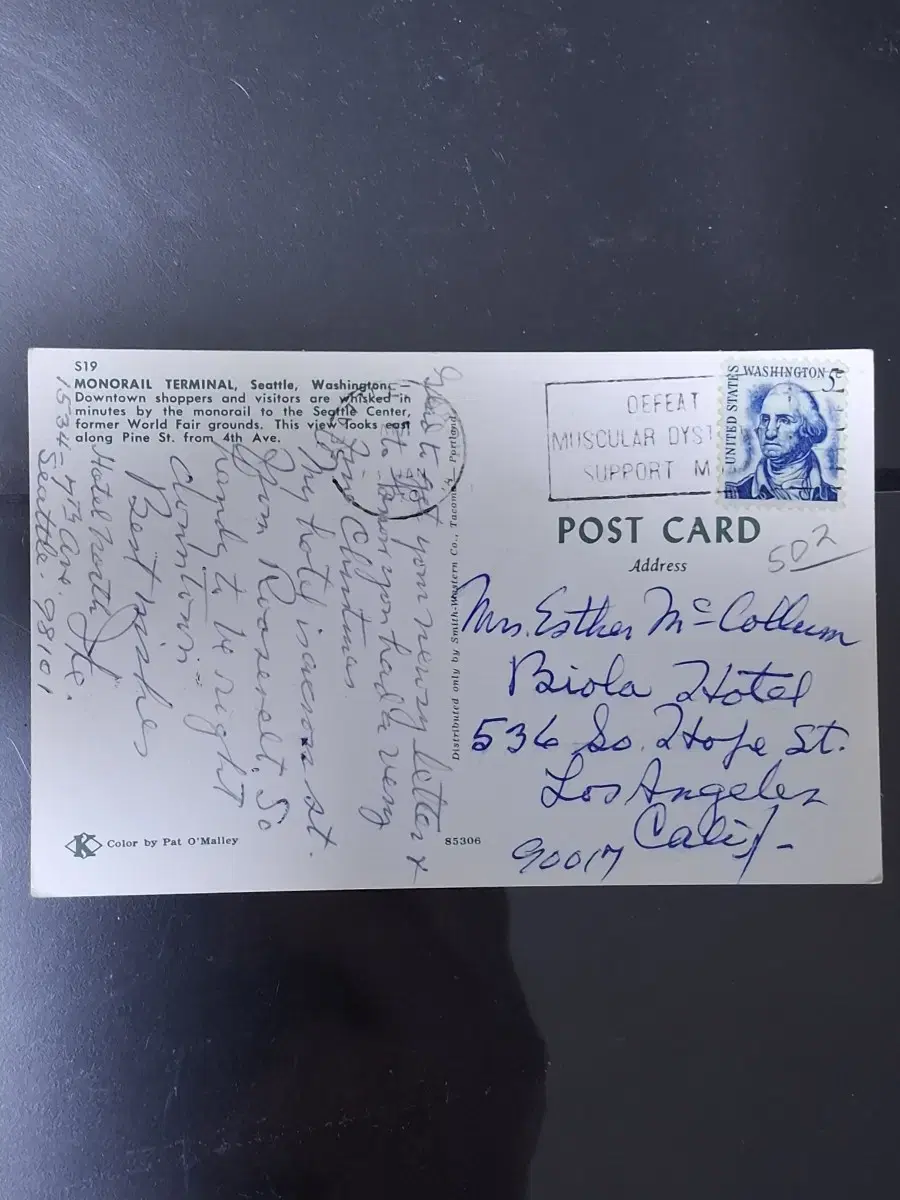 S19
MONORAIL TERMINAL, Seattle, Washington. —
Downtown shoppers and visitors are whisked in
minutes by the monorail to the Seattle Center,
former World Fair grounds. This view looks east
along Pine St. from 4th Ave.
got your newsy letter &
know you had a very
fine Christmas.
My hotel is across st.
from Roosevelt. So
handy to be right
downtown
Best Wishes
Hotel North
1534-7th Ave.
Seattle. 98101
Color by Pat O'Malley
K
Distributed only by Smith-Western Co., Tacoma — Portland
85306
DEFEAT
MUSCULAR DYST
SUPPORT M
UNITED STATES
WASHINGTON 5c
POST CARD
Address
502
Mrs. Esther McCollum
Biola Hotel
536 So. Hope St.
Los Angeles
Calif-
90017